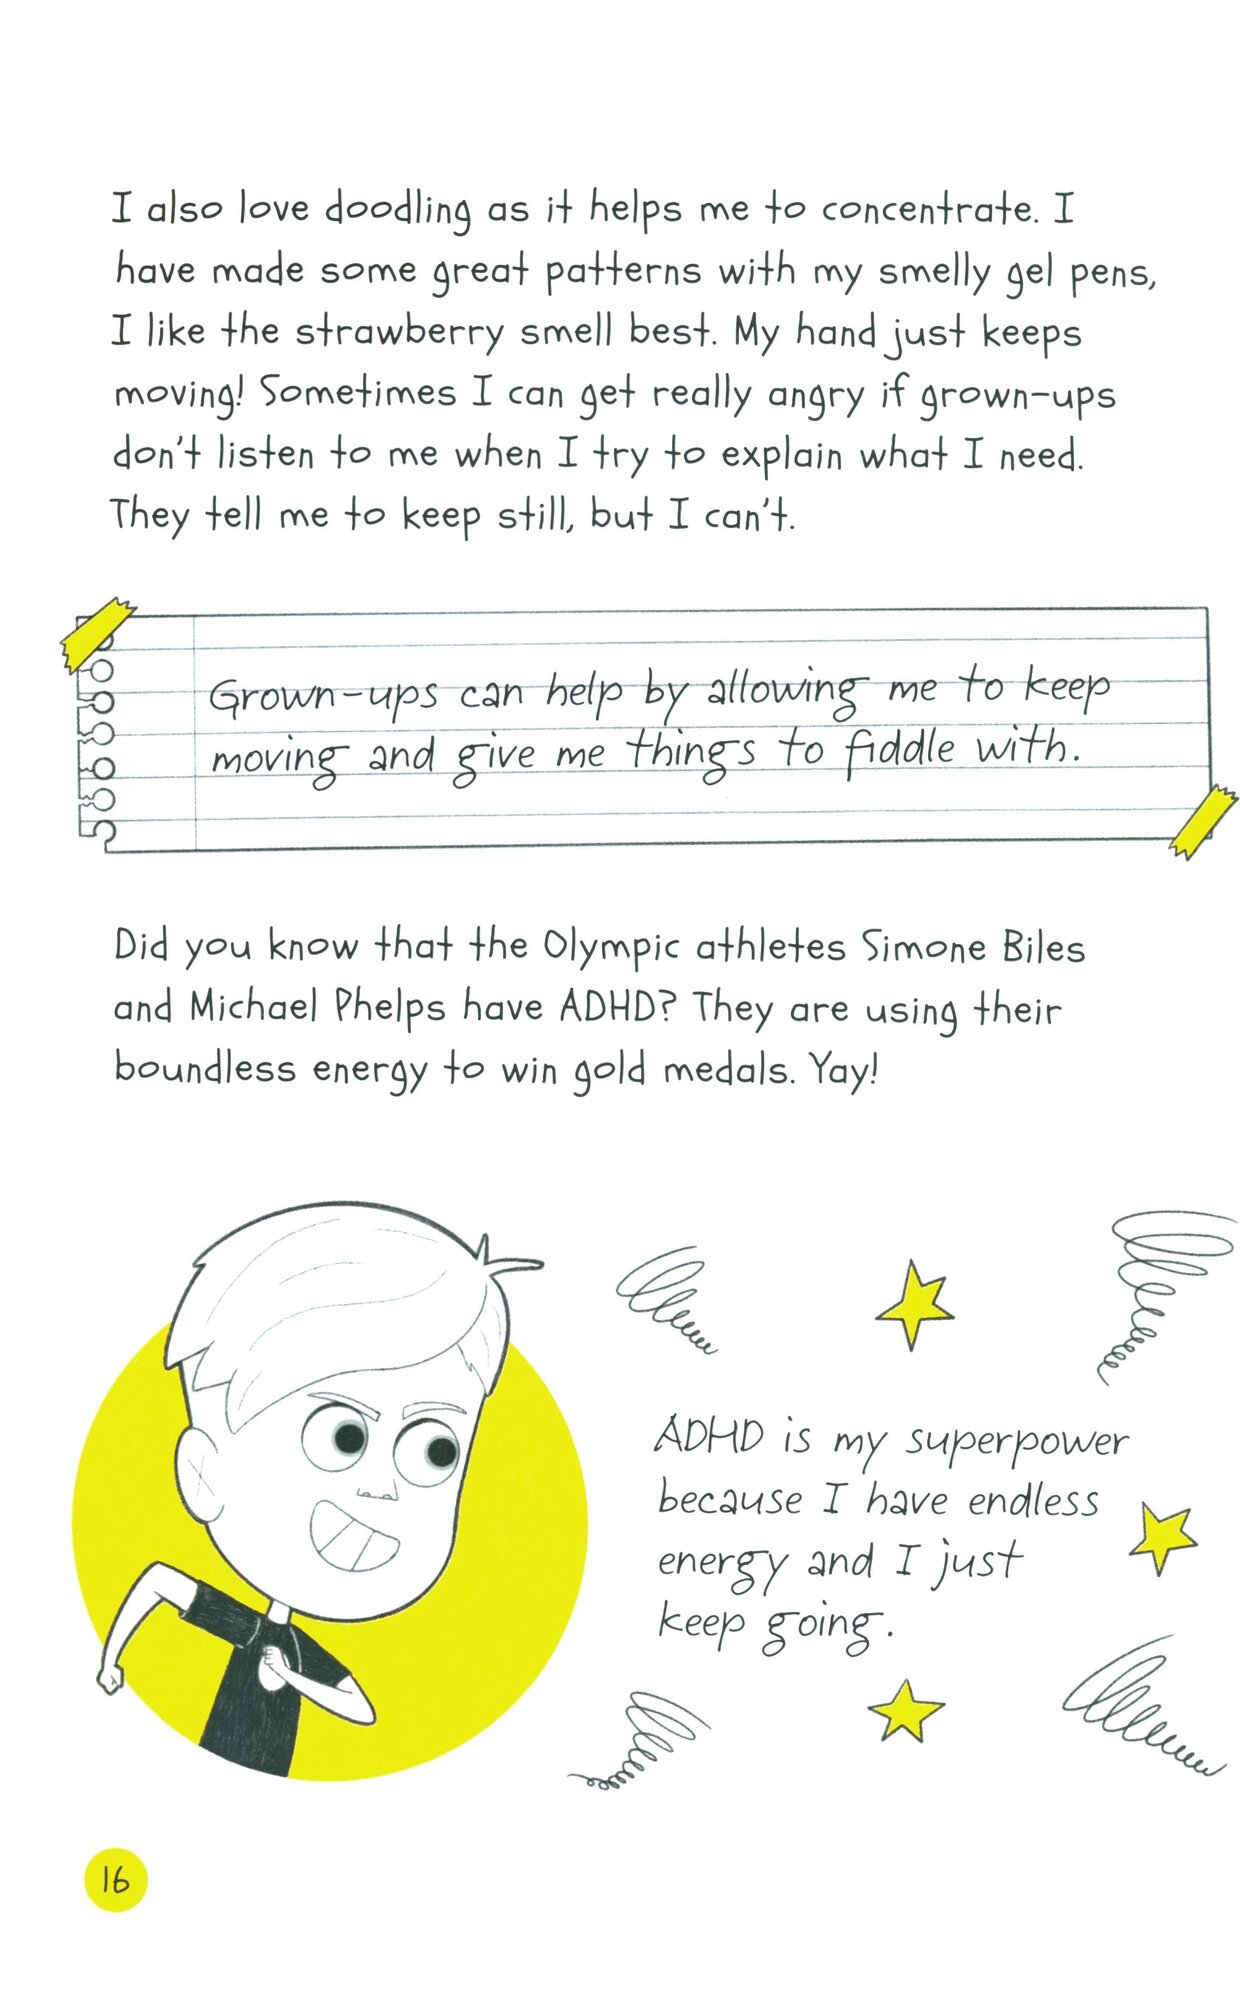 I also love doodling as it helps me to concentrate. I
have made some great patterns with my smelly gel pens,
I like the strawberry smell best. My hand just keeps
moving! Sometimes I can get really angry if grown-ups
don't listen to me when I try to explain what I need.
They tell me to keep still, but I can't.
Grown-ups can help by allowing me to keep
moving and give me things to fiddle with.
Did you know that the Olympic athletes Simone Biles
and Michael Phelps have ADHD? They are using their
boundless energy to win gold medals. Yay!
ADHD is my superpower
because I have endless
energy and I just
keep going.
16